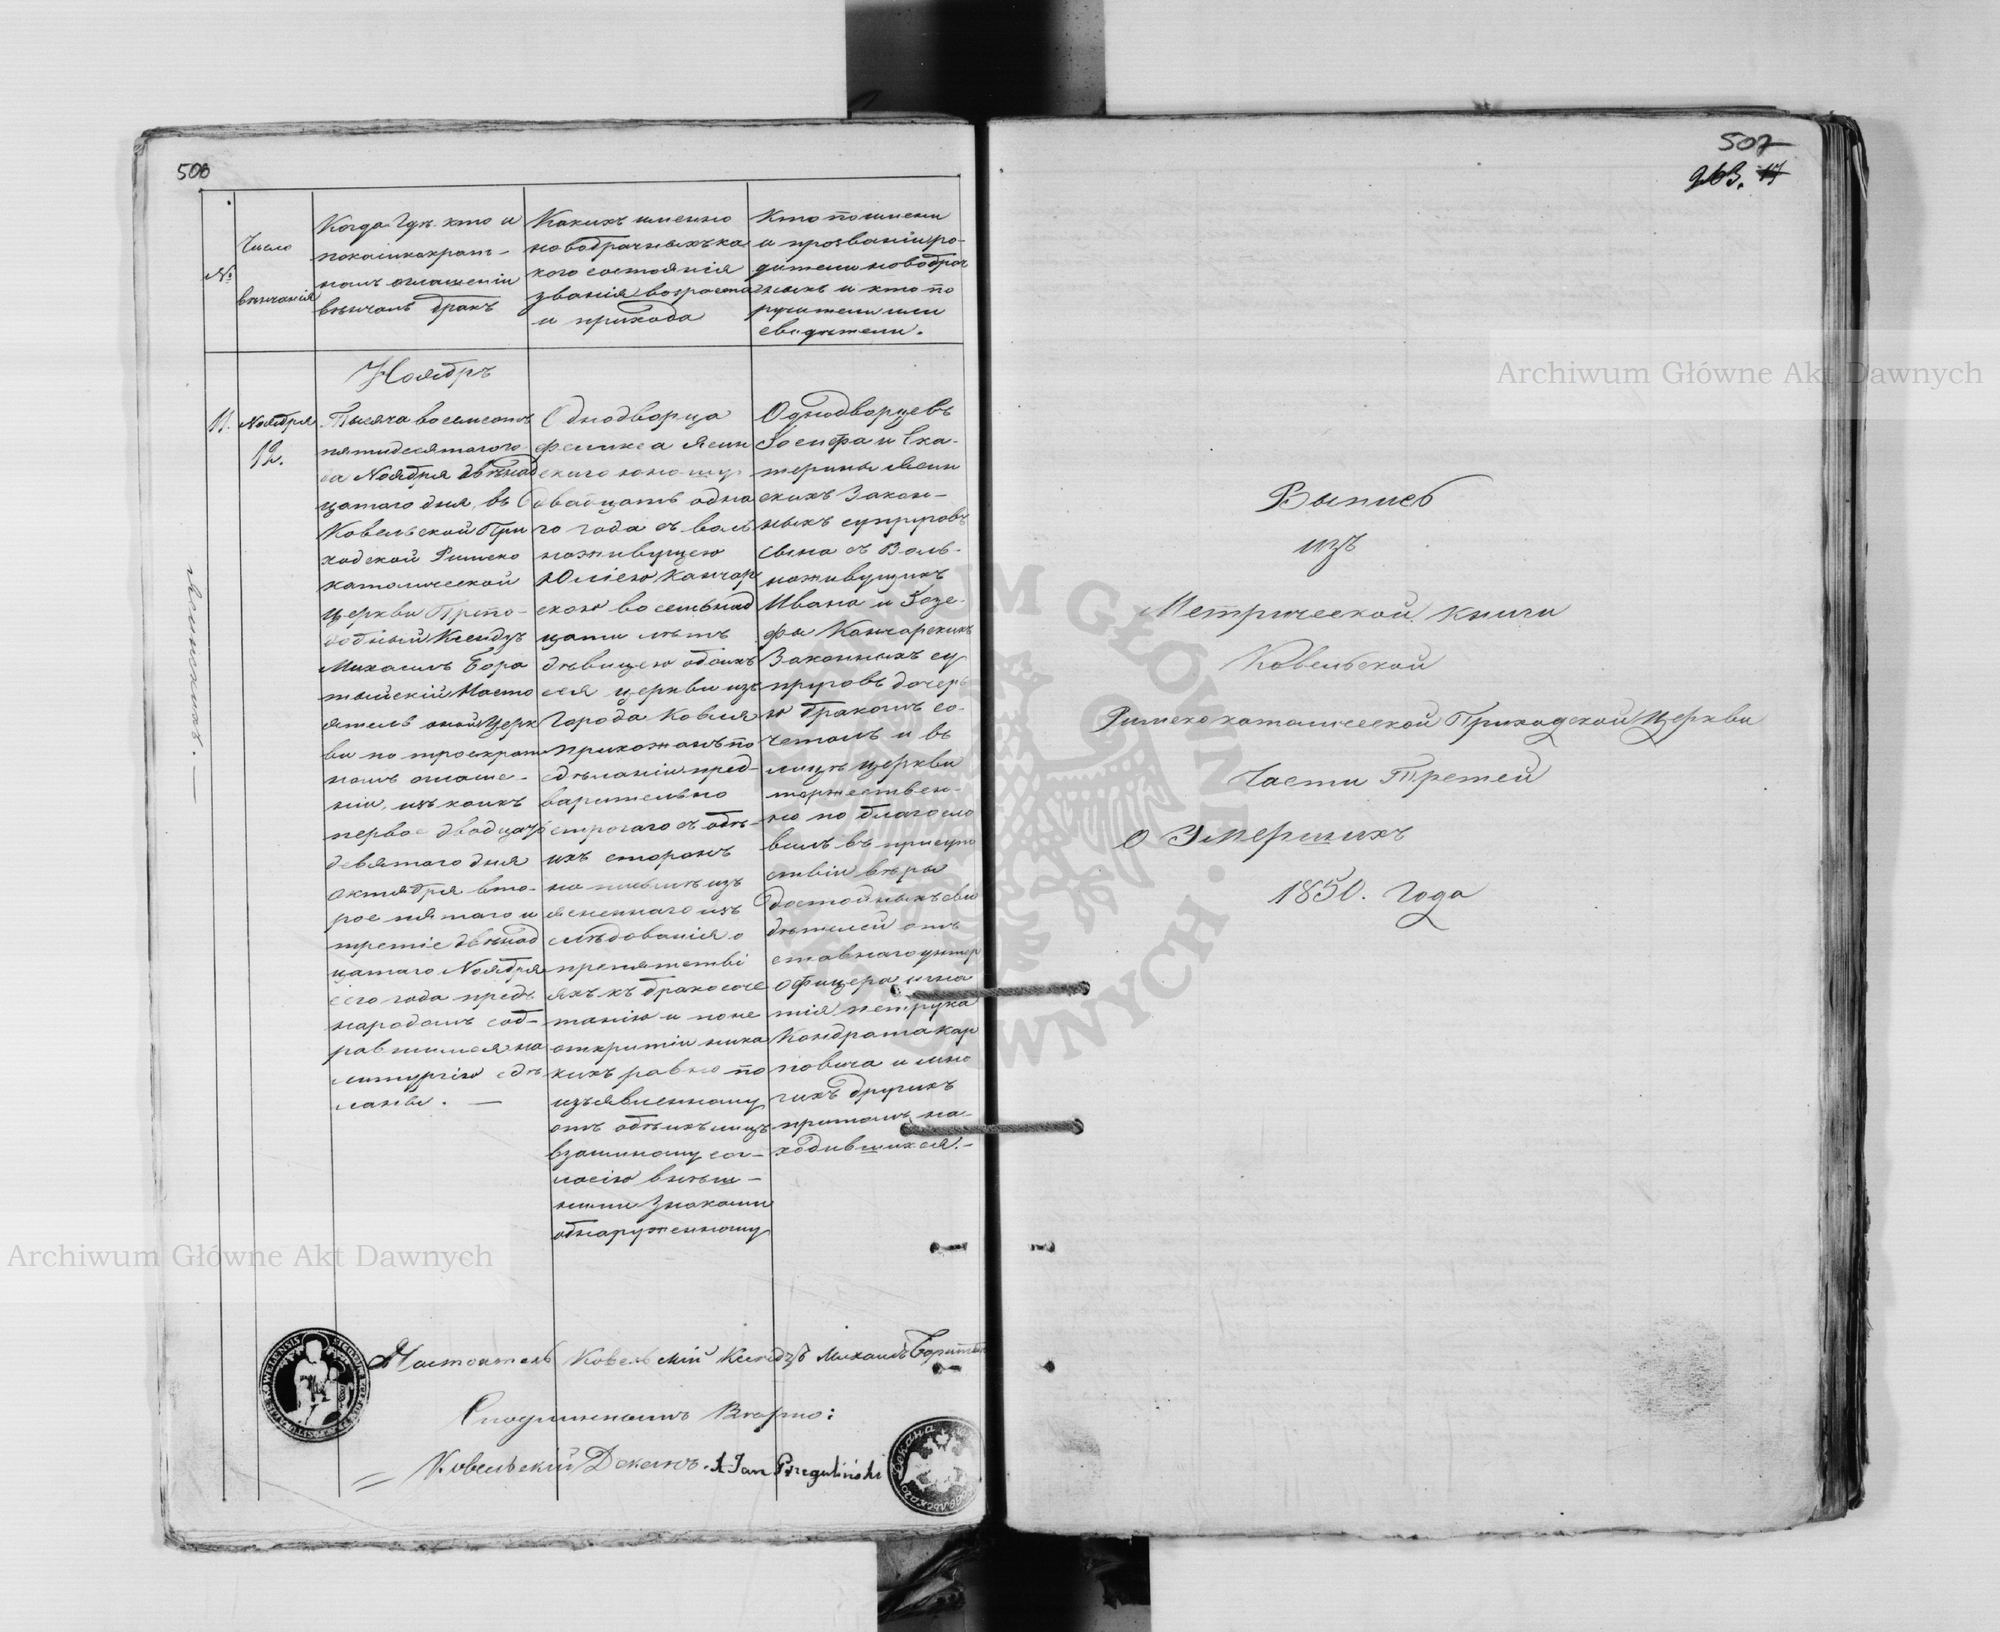 500
№
Число
вѣнчанія
Когда гдѣ кто и
по коликократ-
номъ оглашеніи
вѣнчалъ бракъ
Какихъ именно
новобрачныхъ ка
кого состоянія
званія возраста
и прихода
Кто по имени
и прозваніи ро-
дители новобрач
ныхъ и кто по
ручители или
свидѣтели.
Ноябрь
11.
Ноября
12.
Тысяча восемсотъ
пятидесятого го
да Ноября двѣнад
цатого дня, въ
Ковельской При
ходской Римско
католической
Церкви Препо-
добный Ксендзъ
Михаилъ Бора
тынскій Насто
ятель оной Церк
ви по троекрат
номъ оглаше-
ніи, изъ коихъ
первое двадцать
девятого дня
Октября вто-
рое пятого и
третіе двѣнад
цатого Ноября
сего года предъ
народомъ соб-
равшимся на
литургію сдѣ
ланы. —
Однодворца
Феликса Ясин
скаго юношу
двадцать одно
го года съ воль
ноживущею
Юліею Канчар
скою восемьнад
цати лѣтъ
дѣвицею обоихъ
сея церкви изъ
Города Ковля
прихожанъ по
сдѣланіи пред-
варительно
строгаго съ обѣ-
ихъ сторонъ
на письмѣ изъ
ясненнаго изъ
слѣдованія о
препятстві
яхъ къ бракосоче
танію и по не
открытіи ника
кихъ равно по
изъявленному
отъ обѣихъ лицъ
взаимному сог-
ласію внѣш-
ними знаками
обнаруженному
Однодворцевъ
Іосифа и Ека-
терины Ясин
скихъ Закон-
ныхъ супруговъ
сына съ Воль-
ноживущихъ
Ивана и Юзе-
фы Канчарскихъ
Законныхъ су
пруговъ дочерь
ю бракомъ со-
четалъ и въ
лицѣ церкви
торжествен-
но по благосло
вилъ въ присут
ствіи вѣры
достойныхъ сви
дѣтелей отъ
ставнаго унтер
офицера Игна
тія Петрука
Кондрата Кар
повича и мно
гихъ другихъ
притомъ на-
ходившихся. —
Настоятель Ковельскій Ксендзъ Михаилъ
Съ подлиннымъ Вѣрно:
Ковельскій Деканъ. X. Jan Przegaliński
507
263. 17
Выпись
изъ
Метрической книги
Ковельской
Римско католической Приходской Церкви
Части Третей
о Умершихъ
1850. Года
Archiwum Główne Akt Dawnych
Archiwum Główne Akt Dawnych